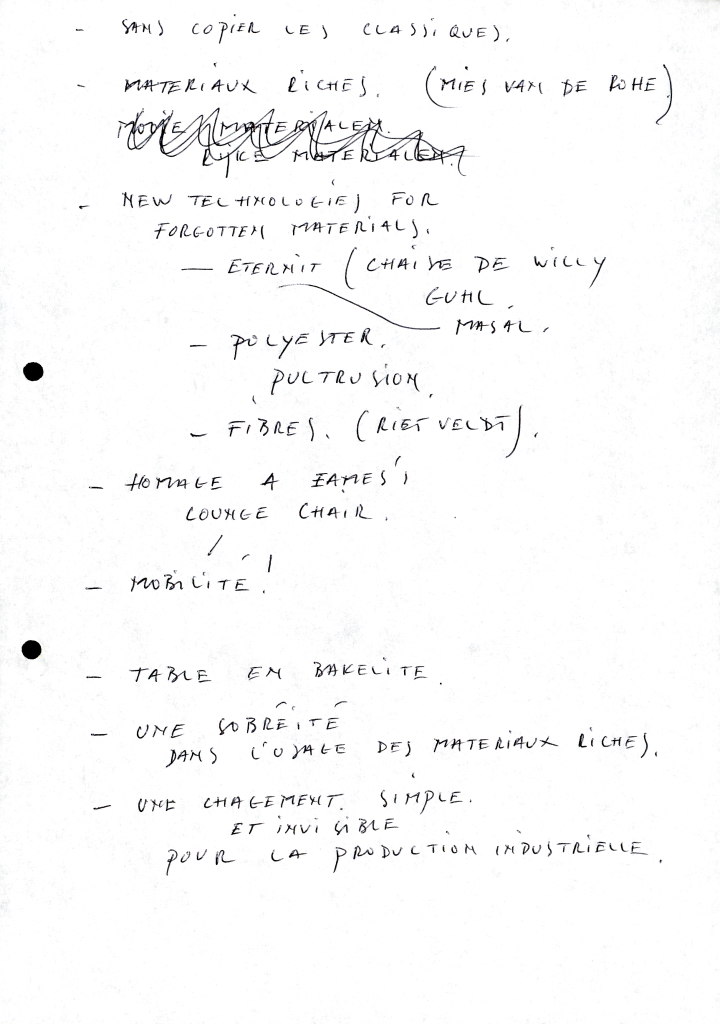 - SANS COPIER LES CLASSIQUES.
- MATERIAUX RICHES. (MIES VAN DE ROHE)
MOOIE MATERIALEN.
RIJKE MATERIALEN.
- NEW TECHNOLOGIES FOR
FORGOTTEN MATERIALS.
— ETERNIT (CHAISE DE WILLY
GUHL.
— MASAL.
- POLYESTER.
PULTRUSION.
- FIBRES. (RIETVELDT).
- HOMAGE A EAMES'S
LOUNGE CHAIR.
- MOBILITÉ!
- TABLE EN BAKELITE.
- UNE SOBRÉITÉ
DANS L'USAGE DES MATERIAUX RICHES.
- UNE CHAGEMENT. SIMPLE.
ET INVISIBLE
POUR LA PRODUCTION INDUSTRIELLE.